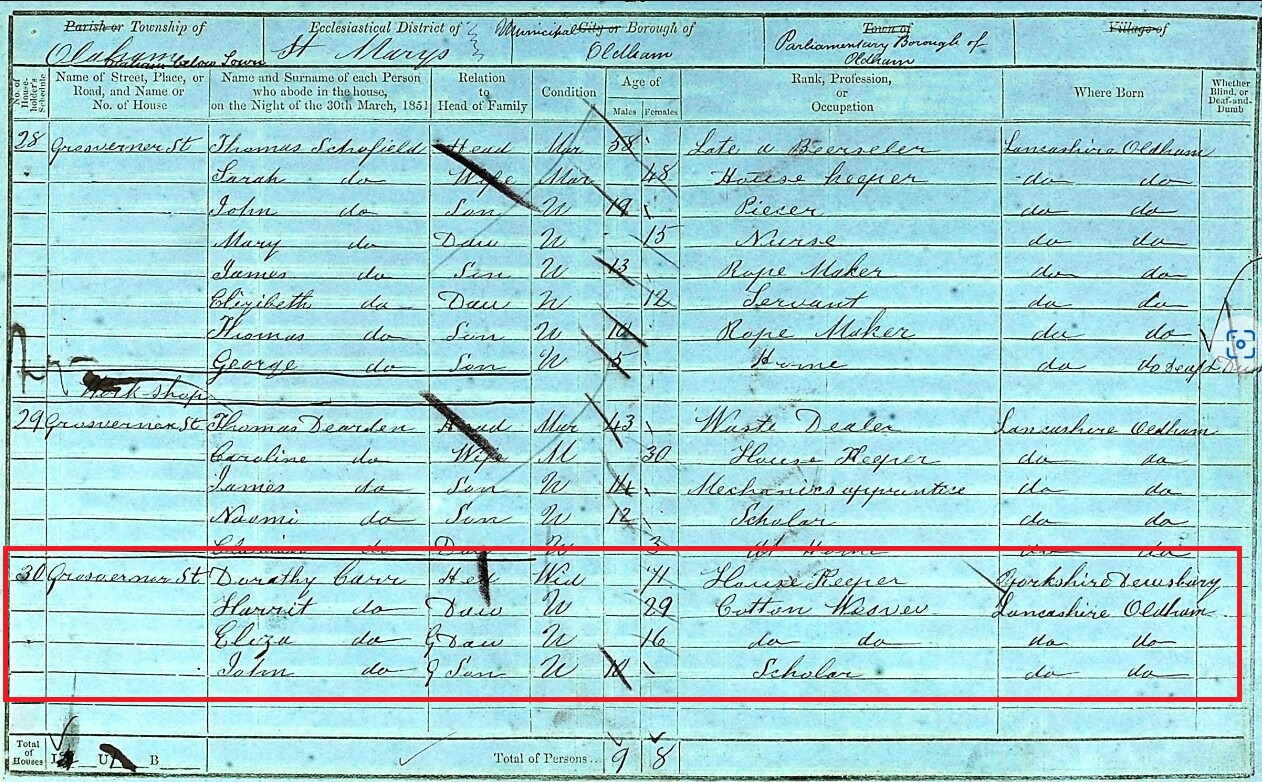 Parish or Township of
Ecclesiastical District of
Municipal City or Borough of
Town of
Village of
Oldham below Town
St Marys
Oldham
Parliamentary Borough of Oldham
No. of House-holder's Schedule
Name of Street, Place, or Road, and Name or No. of House
Name and Surname of each Person who abode in the house, on the Night of the 30th March, 1851
Relation to Head of Family
Condition
Age of
Males Females
Rank, Profession, or Occupation
Where Born
Whether Blind, or Deaf-and-Dumb
28 Grosverner St Thomas Schofield Head Mar 58 Late a Beerseler Lancashire Oldham
Sarah do Wife Mar 48 House keeper do do
John do Son U 19 Piecer do do
Mary do Daw U 15 Nurse do do
James do Son U 13 Rope Maker do do
Elizibeth do Daw U 12 Servant do do
Thomas do Son U 10 Rope Maker do do
George do Son U 5 Home do do Deaf & Dum
Workshop
29 Grosverner St Thomas Dearden Head Mar 43 Waste Dealer Lancashire Oldham
Caroline do Wife M 30 House Keeper do do
James do Son U 14 Mechanics apprantice do do
Naomi do Son U 12 Scholar do do
do Daw U 3 at Home do do
30 Grosverner St Dorathy Carr Hed Wid 71 House Keeper Yorkshire Dewsbury
Harrit do Daw U 29 Cotton Wever Lancashire Oldham
Eliza do G Daw U 16 do do do do
John do G Son U Scholar do do
Total of Houses I U B Total of Persons... 9 8